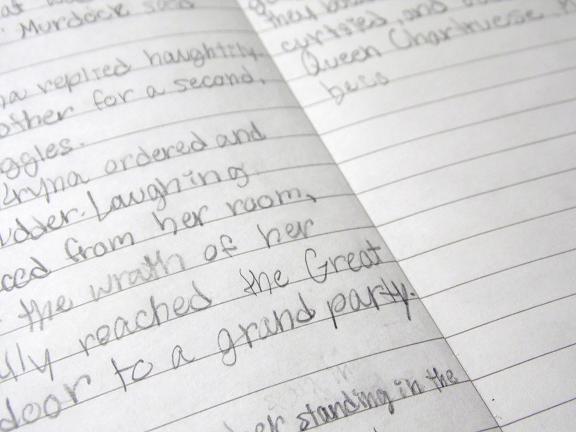 Murdock said
replied haughtily.
other for a second.
ggles.
ordered and
udder. Laughing
ced from her room,
the wrath of her
ully reached the Great
door to a grand party.
standing in the
curtsies, and
Queen